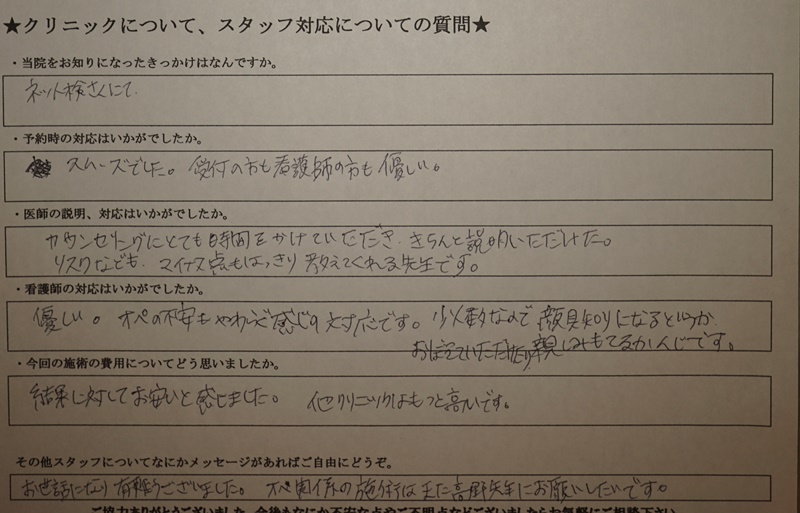 ★クリニックについて、スタッフ対応についての質問★
・当院をお知りになったきっかけはなんですか。
ネット検さくにて.
・予約時の対応はいかがでしたか。
スムーズでした。受付の方も看護師の方も優しい。
・医師の説明、対応はいかがでしたか。
カウンセリングにとても時間をかけていただき、きちんと説明いただけた。
リスクなども、マイナス点もはっきり教えてくれる先生です。
・看護師の対応はいかがでしたか。
優しい。オペの不安もやわらぐ感じの対応です。少人数なので顔見知りになるというか
おぼえていただけたり親しみもてるかんじです。
・今回の施術の費用についてどう思いましたか。
結果に対してお安いと感じました。他クリニックはもっと高いです。
その他スタッフについてなにかメッセージがあればご自由にどうぞ。
お世話になり有難うございました。オペ関係の施術はまた高野先生にお願いしたいです。
ご協力ありがとうございました。今後もなにか不安な点やご不明点などございましたらお気軽にご相談下さい